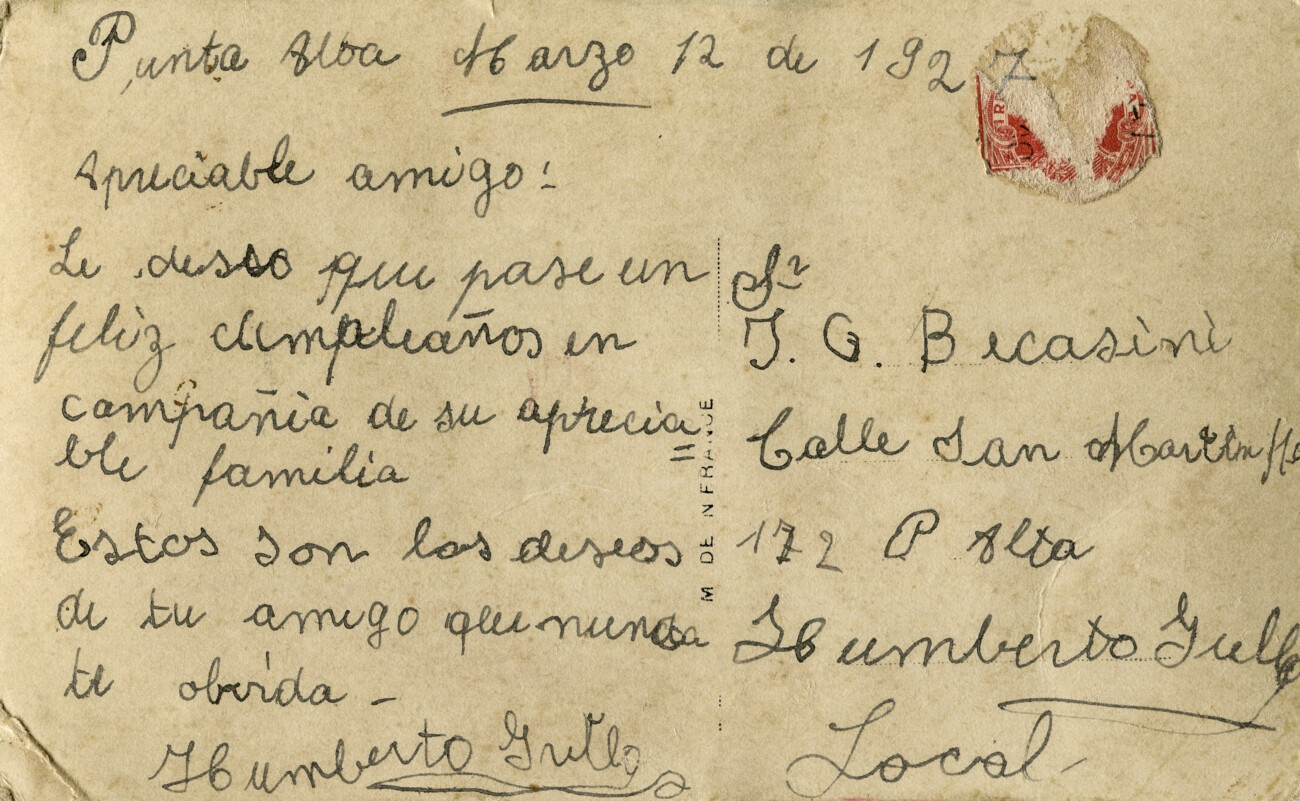 Punta Alta Marzo 12 de 1927
Apreciable amigo:
Le deseo que pase un
feliz cumpleaños en
compañia de su aprecia=
ble familia
Estos son los deseos
de tu amigo que nunca
te obvida -
Humberto Grillo
M DE N FRANCE
Sr
J. G. Becasini
Calle San Martin
172 P Alta
Humberto
Local-